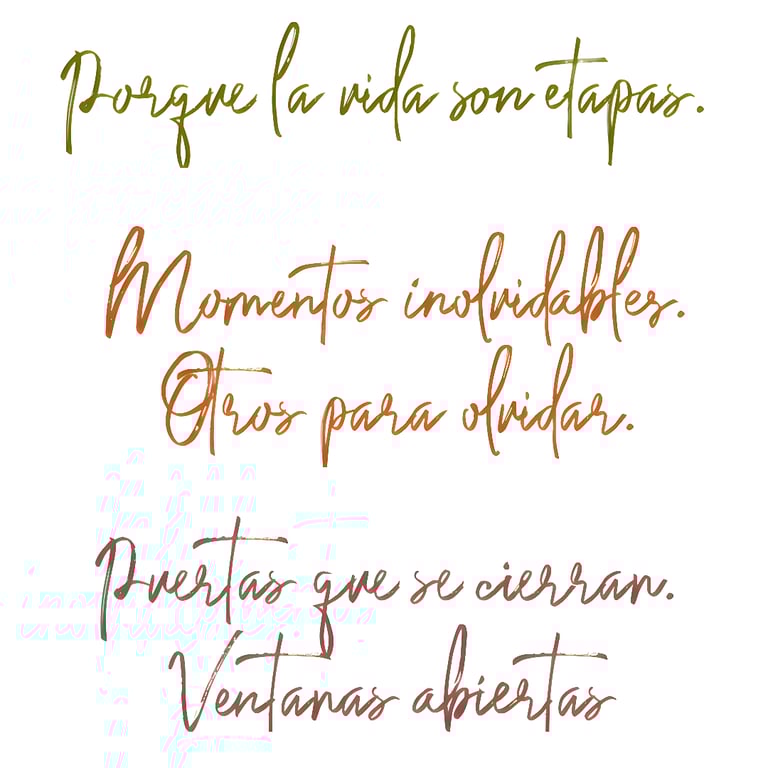 Porque la vida son etapas.
Momentos inolvidables.
Otros para olvidar.
Puertas que se cierran.
Ventanas abiertas